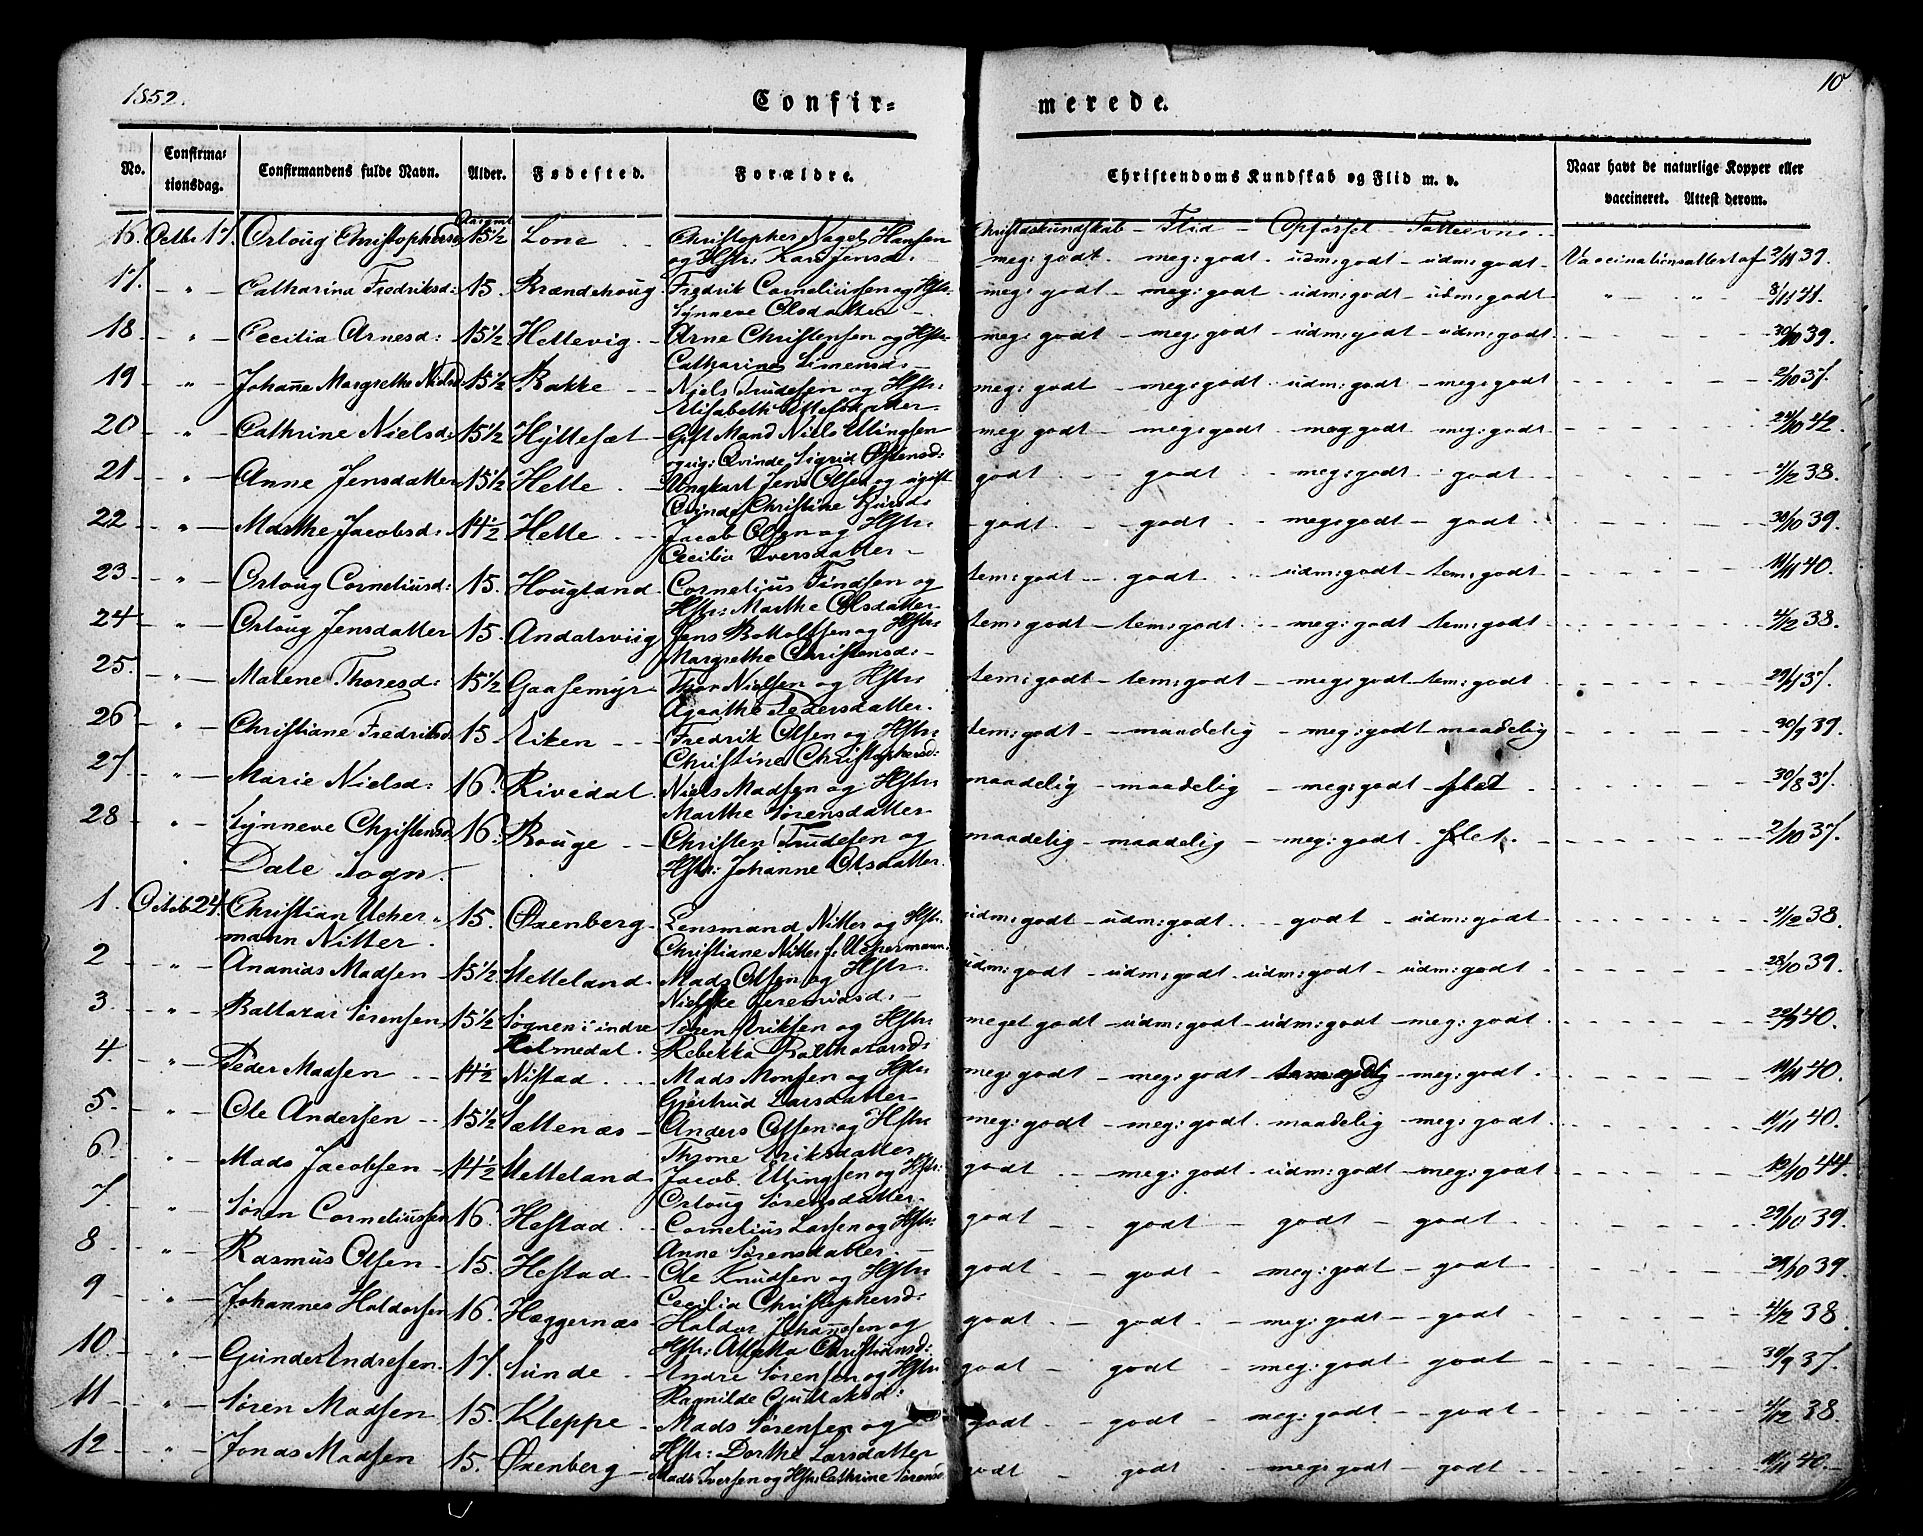 1852.
10
Confir= merede.
No. Confirma= tionsdag. Confirmandens fulde Navn. Alder. Fødested. Forældre. Christendoms Kundskab og Flid m. v. Naar havt de naturlige Kopper eller vaccineret. Attest derom.
Christdskundskab - Flid - Opførsel - Fatteevne
16. Octbr 17. Orloug Christophersd 15½ Lone Christopher Nagel Hansen meg: godt. meg: godt. udm: godt - udm: godt - Vaccinationsattest af 2/11 39.
og Hstr: Kari Jensd:
17. " Catharina Fredriksd: 15. Brændehoug Fredrik Corneliussen og Hstr: meg: godt - meg: godt udm: godt - udm: godt " " 8/11 41.
Synneve Olsdatter
18 " Cecilia Arnesd: 15½ Hellevig Arne Christensen og Hstr: meg: godt - meg: godt - udm: godt - udm: godt 30/10 39.
Catharine Simensd:
19 " Johanne Margrethe Nielsd 15½ Bakke Niels Trudesen og Hstr: meg: godt - meg: godt udm: godt - meg: godt 2/10 37.
Elisabeth Ellefsdatter
20 " Cathrine Nielsd: 15½ Hyllesæt Gift Mand Niels Ellingsen meg: godt - meg: godt meg godt meg: godt 24/10 42.
og ug: Qvinde Sigrid Østensd:
21 " Anne Jensdatter 15½ Helle Ungkarl Jens Olsen og ugift godt godt meg: godt godt 2/12 38.
Qvinde Christine
22 " Marthe Jacobsd: 14½ Helle Jacob Olsen og Hstr: godt godt meg: godt - godt 30/10 39.
Cecilia Iversdatter
23 " Orloug Corneliusd: 15. Hougland Cornelius Findsen og tem: godt - godt udm: godt - tem: godt 11/11 40.
Hstr: Marthe Olsdatter
24 " Orloug Jensdatter 15. Andalsviig Jens Bottolfsen og Hstr: tem: godt - tem: godt meg: godt tem: godt 4/12 38.
Margrethe Christensd:
25. " Malene Thoresd: 15½ Gaasemyr Thor Nielsen og Hstr: tem: godt - tem: godt meg: godt tem: godt 29/11 37.
Agathe Pedersdatter
26 " Christiane Fredriksd 15 Eiken Fredrik Olsen og Hstr: tem: godt - maadelig - meg: godt maadelig 30/9 39.
Christine Christophersd:
27. " Marie Nielsd: 16. Rivedal Niels Madsen og Hstr: maadelig - maadelig - meg: godt slet 30/8 37.
Marthe Sørensdatter
28 " Synneve Christensd 16. Bouge Christen Trudesen og maadelig - maadelig - meg: godt slet. 2/10 37.
Dale Sogn. Hstr: Johanne Olsdatter
1. Octob 24. Christian Ucher= 15. Øxenberg Lensmand Nitter og Hstr: udm: godt - udm: godt godt - udm: godt 4/12 38.
mann Nitter. Christiane Nitter f: Uchermann
2 " Ananias Madsen 15½ Helleland. Mads Olsen og Hstr: udm: godt - udm: godt udm: godt - udm: godt 28/10 39.
Nielske Jeremiasd:
3. " Baltazar Sørensen 15½ Sognen i indre Søren Eriksen og Hstr: meget godt - udm: godt - udm: godt - meg: godt 40.
Holmedal. Rebekka Balthazarsd:
4 " Peder Madsen 14½ Nistad Mads Monsen og Hstr: meg: godt - meg: godt meg: godt 11/11 40.
Gjertrud Larsdatter
5. " Ole Andersen 15½ Sættenæs Anders Olsen og Hstr: meg: godt - meg: godt. maadelig meg: godt 11/11 40.
Throne Eriksdatter
6. " Mads Jacobsen 14½ Helleland. Jacob Ellingsen og Hstr: godt meg: godt udm: godt - meg: godt 12/10 44.
Orloug Sørensdatter
7. " Søren Corneliussen 16. Hestad Cornelius Larsen og Hstr: godt godt - godt - godt 29/10 39.
Anne Sørensdatter
8 " Rasmus Olsen 15. Hestad Ole Knudsen og Hstr: godt godt - meg: godt - godt 29/10 39.
Cecilia Christophersd:
9 " Johannes Haldorsen 16. Hæggernæs Haldor Johannesen og godt godt - meg: godt - godt 4/12 38.
Hstr: Christiansd:
10. " Gunder Andresen 17. Sunde Andre Sørensen og Hstr: godt godt - meg: godt godt 30/9 37.
Ragnilde
11 " Søren Madsen 15. Kleppe Mads Sørensen og godt godt meg: godt godt 4/12 38.
Hstr: Dorthe Larsdatter
12 " Jonas Madsen 15. Øxenberg Mads Iversen og Hstr: Cathrine Sørensd: godt godt meg: godt - godt 11/11 40.